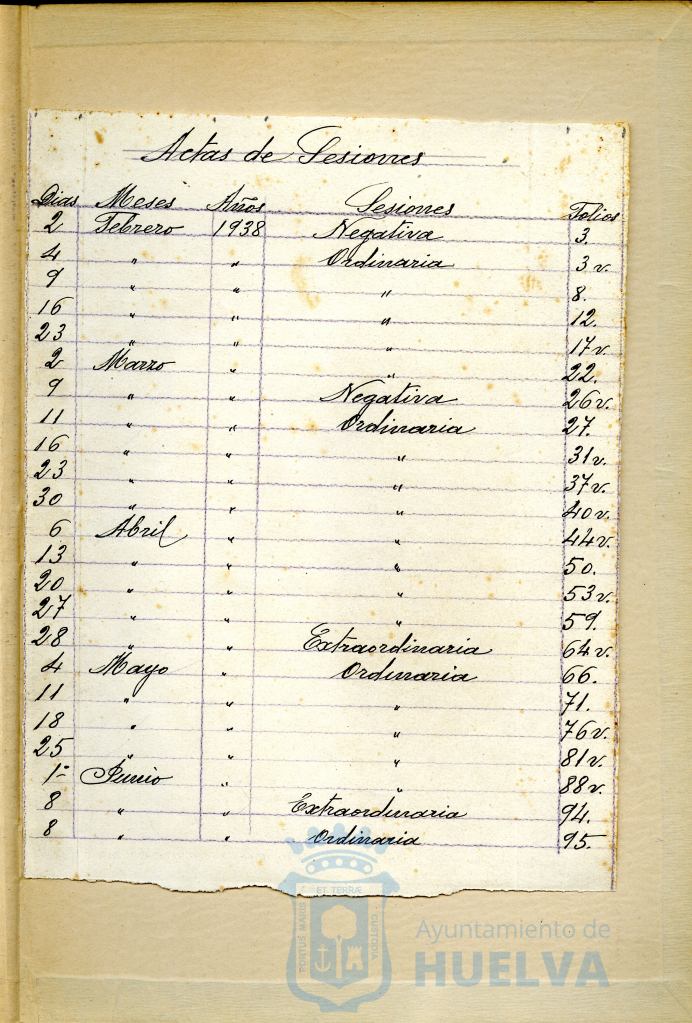 Actas de Sesiones
Dias Meses Años Sesiones Folios
2 Febrero 1938 Negativa 3.
4 " " Ordinaria 3 v.
9 " " " 8.
16 " " " 12.
23 " " " 17 v.
2 Marzo " " 22.
9 " " Negativa 26 v.
11 " " Ordinaria 27.
16 " " " 31 v.
23 " " " 37 v.
30 " " " 40 v.
6 Abril " " 44 v.
13 " " " 50.
20 " " " 53 v.
27 " " " 59.
28 " " Extraordinaria 64 v.
4 Mayo " Ordinaria 66.
11 " " " 71.
18 " " " 76 v.
25 " " " 81 v.
1º Junio " " 88 v.
8 " " Extraordinaria 94.
8 " " Ordinaria 95.
ET TERRÆ
PORTUS MARIS
CUSTODIA
Ayuntamiento de
HUELVA